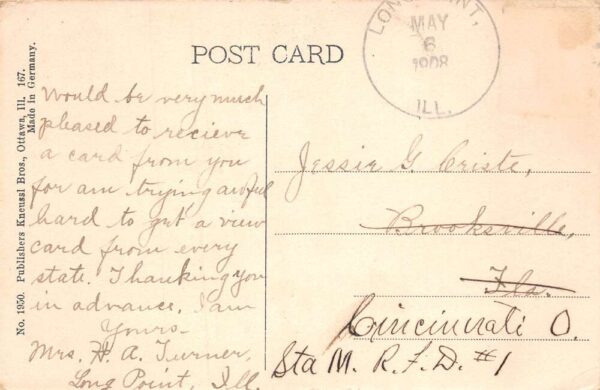 No. 1950. Publishers Kneussl Bros., Ottawa, Ill. 167.
Made in Germany.
POST CARD
LONG POINT,
MAY
6
1908
ILL.
Would be very much
pleased to recieve
a card from you
for am trying awful
hard to get a view
card from every
state. Thanking you
in advance. I am
Yours-
Mrs. H. A. Turner,
Long Point, Ill.
Jessie G. Criste,
Brooksville,
Fla.
Cincinnati O.
Sta M. R. F. D. #1